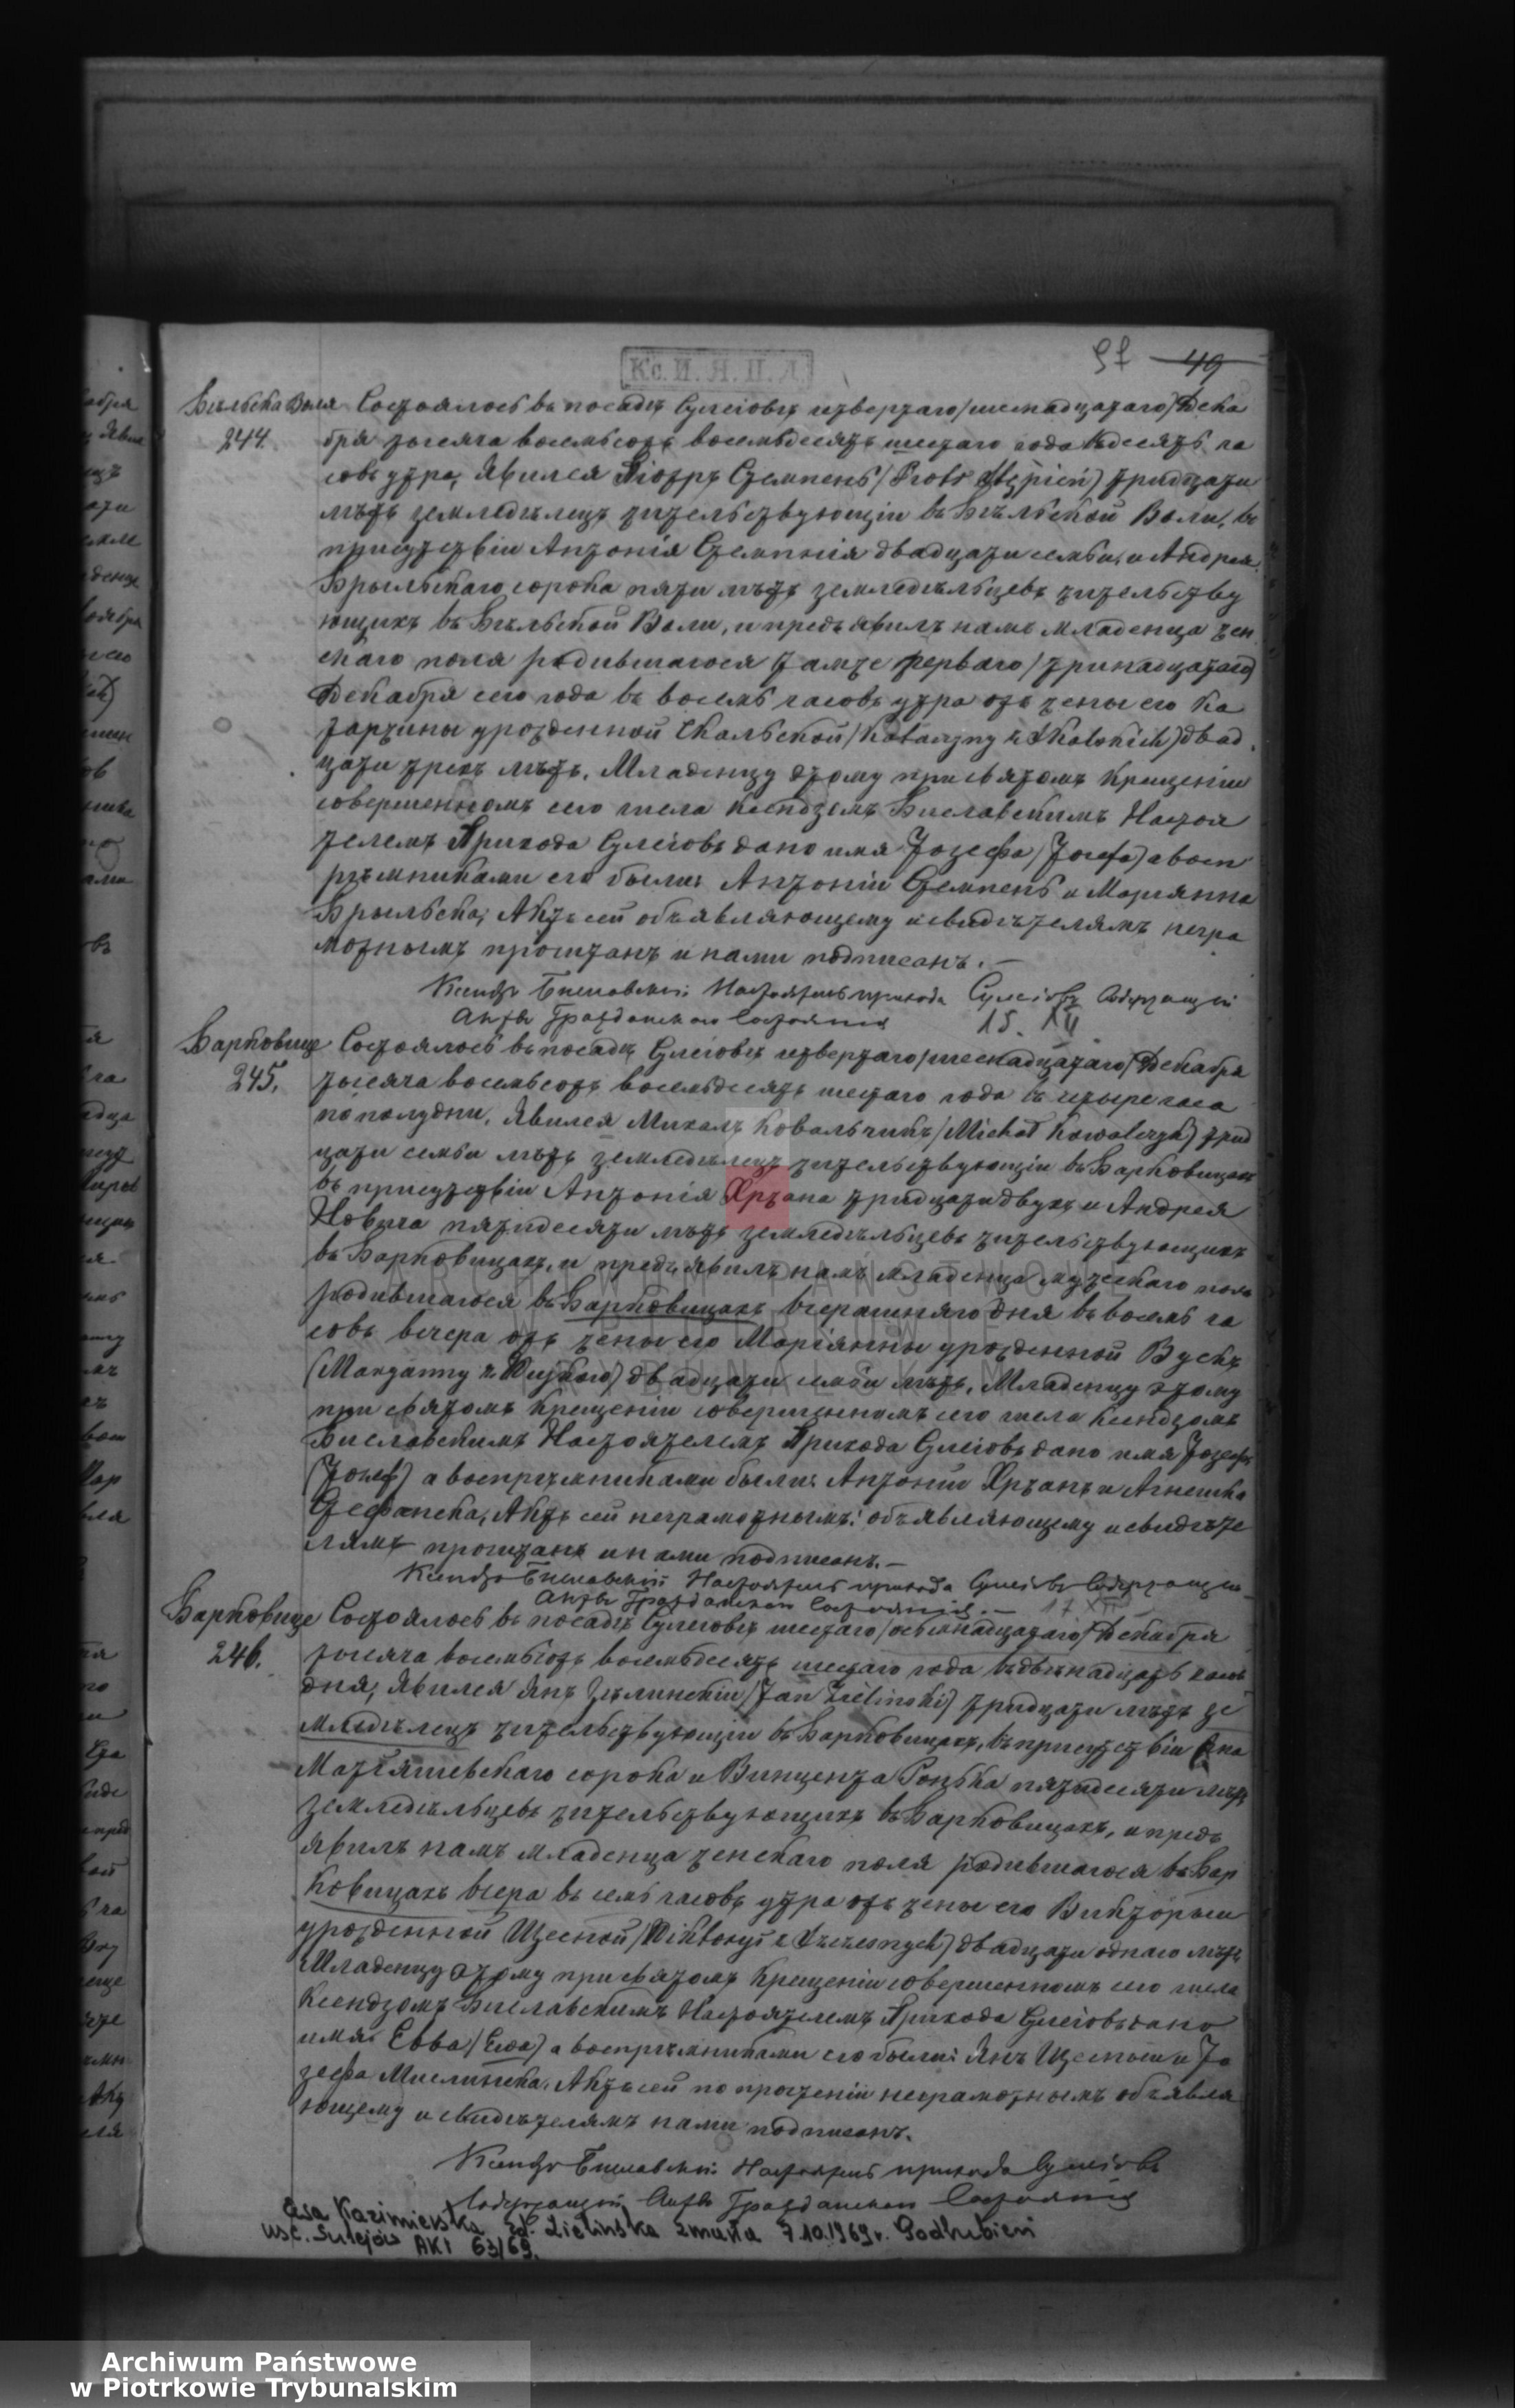 97 49
Кс. И. Я. П. Д.
Бѣльска Воля Состоялось въ посадѣ Сулеіовѣ четвертаго/шестнадцатаго/Дека
244. бря тысяча восемьсотъ восемьдесятъ шестаго года въ десять ча
совъ утра, Явился Піотръ Стемпень/Piotr Stępień) тридцати
лѣтъ земледѣлецъ жительствующій въ Бѣльской Воли, въ
присутствіи Антонія Стемпнія двадцати семи, и Андрея
Брыльскаго сорока пяти лѣтъ земледѣльцевъ жительству
ющихъ въ Бѣльской Воли, и предъявилъ намъ младенца жен
скаго пола родившагося тамже перваго/тринадцатаго)
Декабря сего года въ восемь часовъ утра отъ жены его Ка
таржины урожденной Скальской/Katarzyny z Skalskich) двад
цати трехъ лѣтъ. Младенцу этому при святомъ Крещеніи
совершенномъ сего числа Ксендзомъ Настоя
телемъ Прихода Сулеіовъ дано имя Іозефа/Józefa) а восп
ріемниками его были: Антоній Стемпень и Маріянна
Брыльска, Актъ сей объявляющему и свидѣтелямъ негра
мотнымъ прочитанъ и нами подписанъ.—
Ксендзъ Настоятель прихода Сулеіовъ Содержащій
Акты Гражданскаго Состоянія 15. XII
Барковице Состоялось въ посадѣ Сулеіовѣ четвертаго/шеснадцатаго/Декабря
245. тысяча восемьсотъ восемьдесятъ шестаго года въ четыре часа
по полудни, Явился Михалъ Ковальчикъ/Michał Kowalczyk) трид
цати семи лѣтъ земледѣлецъ жительствующій въ Барковицахъ
въ присутствіи Антонія Хржана тридцати двухъ и Андрея
Новича пятидесяти лѣтъ земледѣльцевъ жительствующихъ
въ Барковицахъ, и предъявилъ намъ младенца мужескаго пола
ARCHIWUM PAŃSTWOWE
родившагося въ Барковицахъ вчерашняго дня въ восемь ча
W PIOTRKOWIE
совъ вечера отъ жены его Маріянны урожденной
(Maryanny z двадцати семи лѣтъ, Младенцу этому
TRYBUNALSKIM
при святомъ Крещеніи совершенномъ сего числа Ксендзомъ
Настоятелемъ Прихода Сулеіовъ дано имя Іозефъ
(Józef) а воспріемниками были: Антоній Хржанъ и Агнешка
Стефанска, Актъ сей неграмотнымъ: объявляющему и свидѣте
лямъ прочитанъ и нами подписанъ.—
Ксендзъ Настоятель прихода Сулеіовъ Содержащій
Акты Гражданскаго Состоянія.— 17 XII
Барковице Состоялось въ посадѣ Сулеіовѣ шестаго/осьмнадцатаго/Декабря
246. тысяча восемьсотъ восемьдесятъ шестаго года въ двѣнадцать часовъ
дня, Явился Янъ Зѣлинскій/Jan Zieliński) тридцати лѣтъ зе
мледѣлецъ жительствующій въ Барковицахъ, въ присутствіи Яна
Матіяшевскаго сорока и Винцента пятидесяти лѣтъ
земледѣльцевъ жительствующихъ въ Барковицахъ, и предъ
явилъ намъ младенца женскаго пола родившагося въ Бар
ковицахъ вчера въ семь часовъ утра отъ жены его Викторыи
урожденной Щесной/Wiktoryi z Szczesnych) двадцати одного лѣтъ
Младенцу этому при святомъ Крещеніи совершенномъ сего числа
Ксендзомъ Настоятелемъ Прихода Сулеіовъ дано
имя Евва/Ewa) а воспріемниками его были: Янъ Щесный и Іо
зефа Мислинска. Актъ сей по прочтеніи неграмотнымъ объявля
ющему и свидѣтелямъ нами подписанъ.
Ксендзъ Настоятель прихода Сулеіовъ
Содержащій Акты Гражданскаго Состоянія
Kazimierska zd. Zielińska zmarła 7.10.1969r.
USC. Sulejów AKT 63/69.
Archiwum Państwowe
w Piotrkowie Trybunalskim